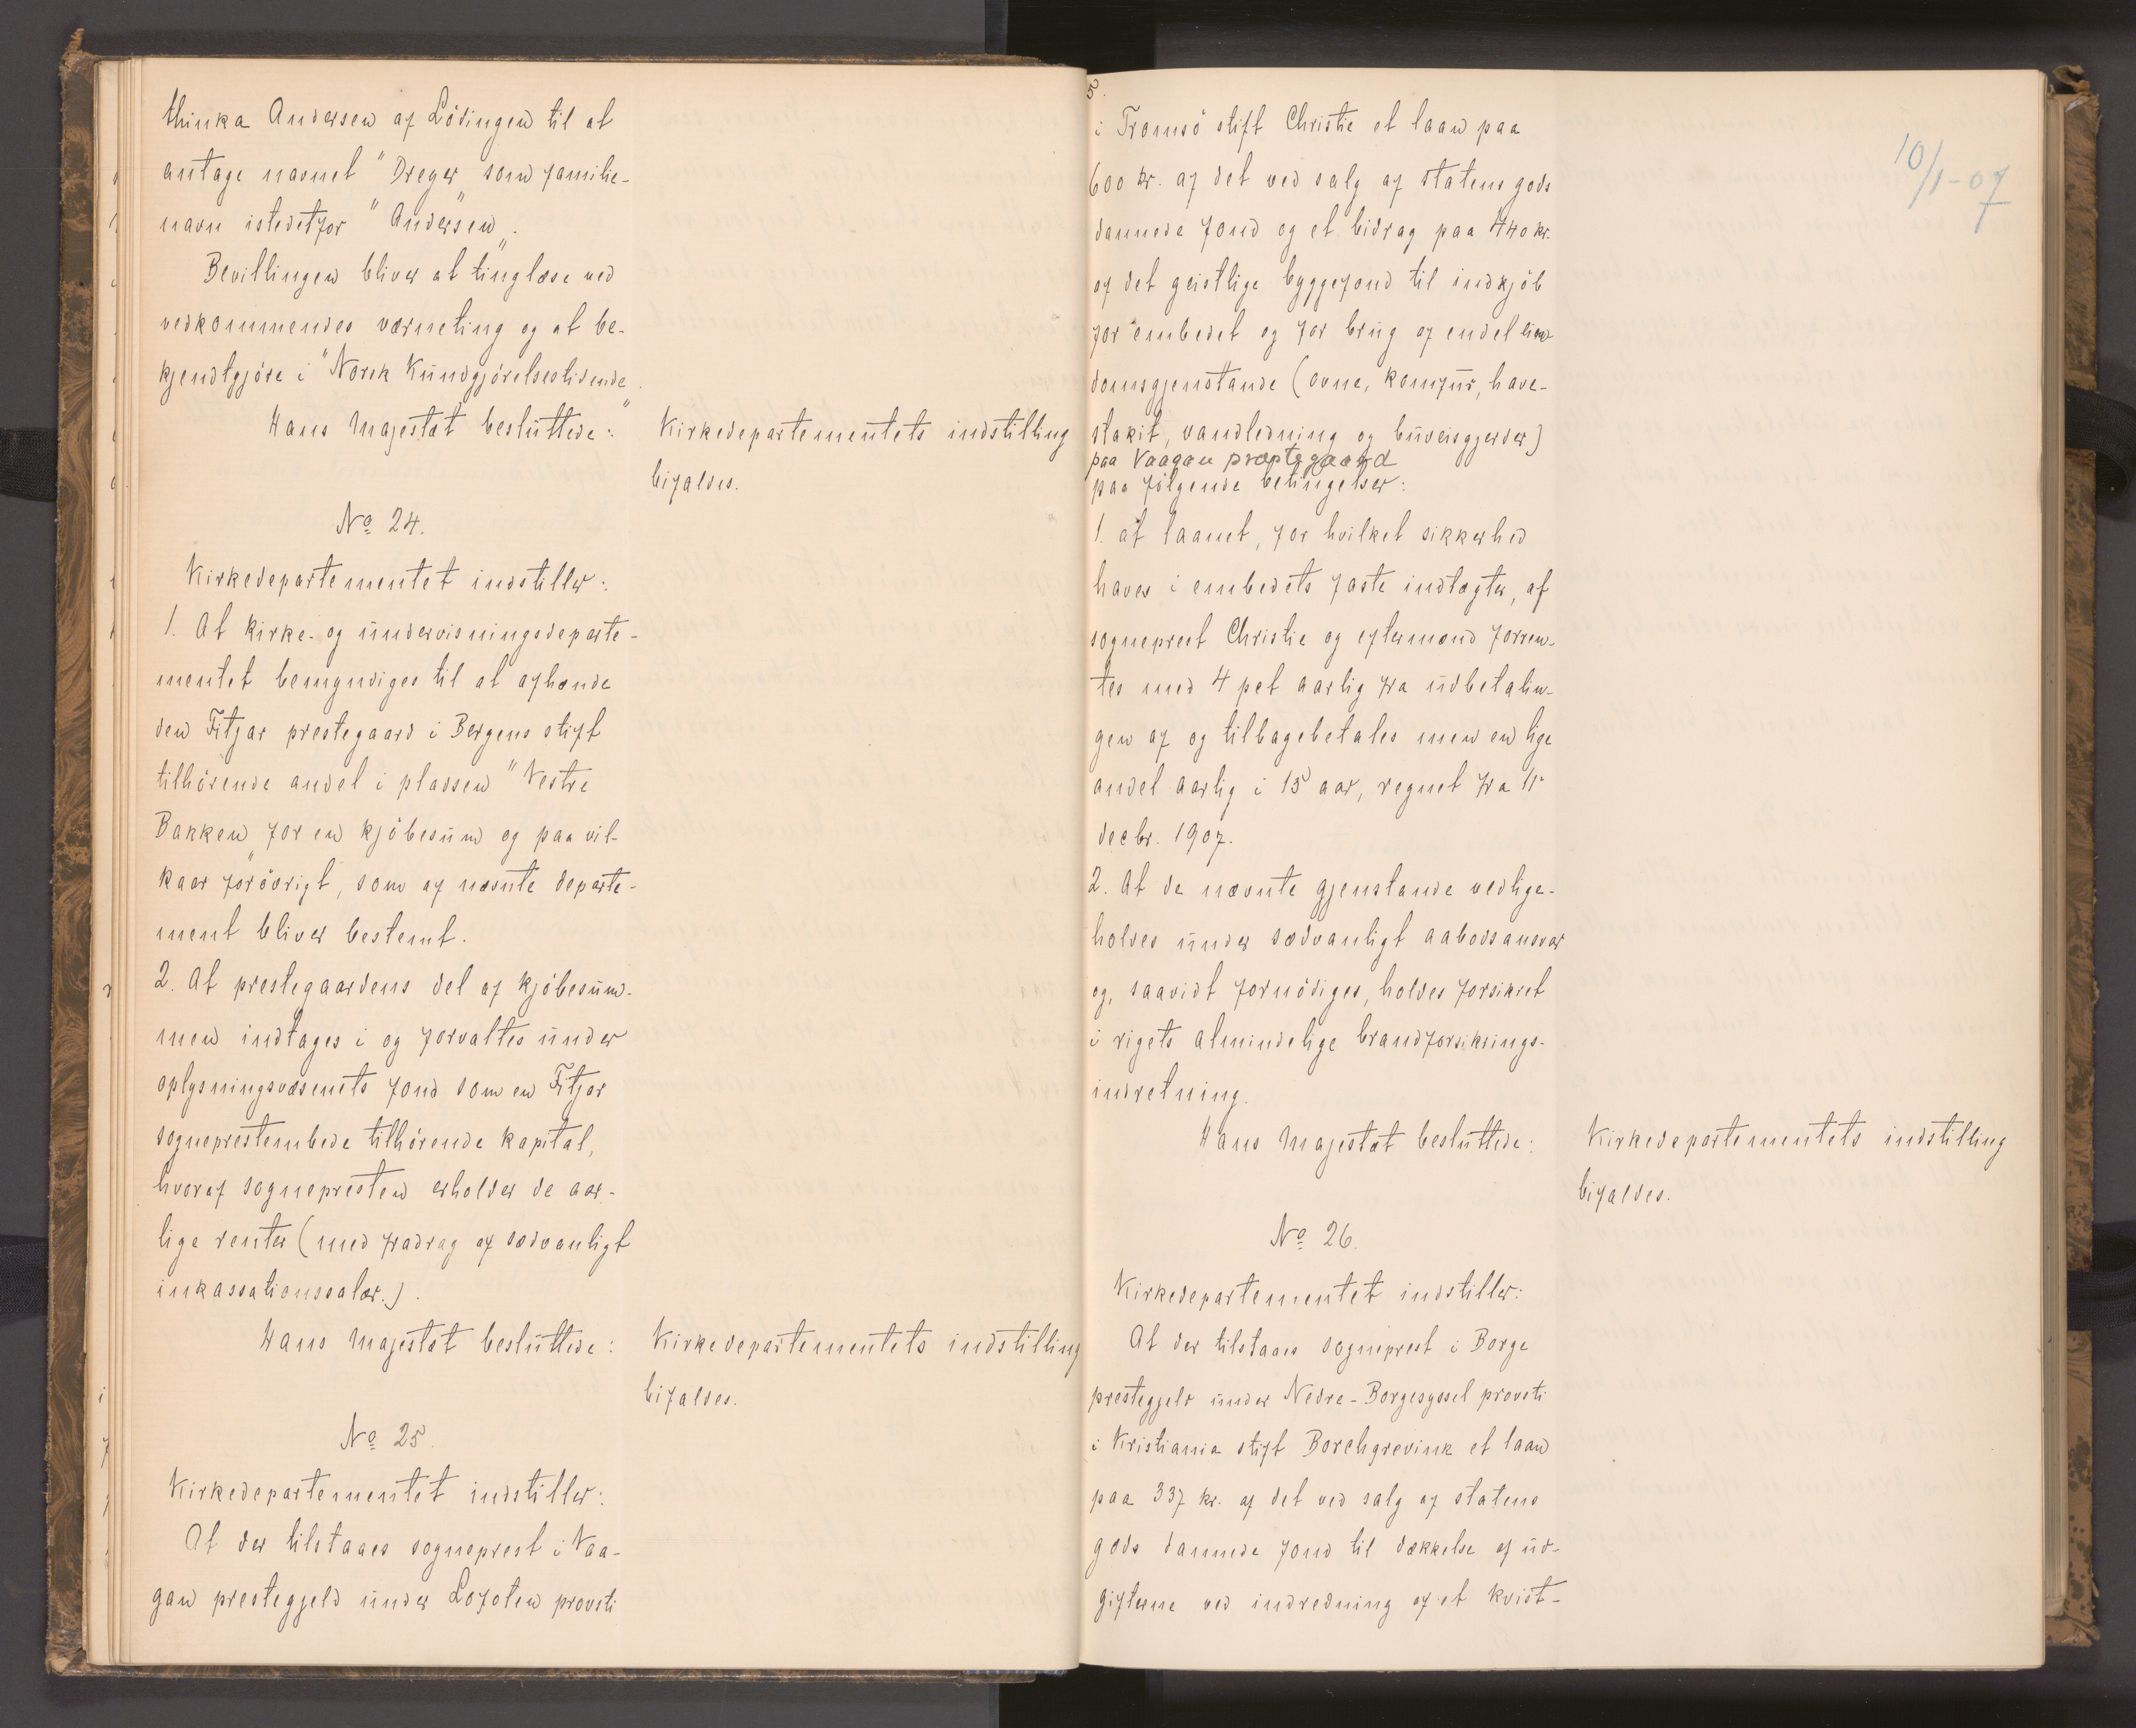 thinka Andersen af Lödingen til at
antage navnet "Dreyer" som familie-
navn istedetfor "Andersen".
Bevillingen bliver at tinglæse ved
vedkommendes værneting og at be-
kjendtgjöre i "Norsk Kundgjörelsestidende".
Hans Majestæt besluttede:
Kirkedepartementets indstilling
bifaldes.
No 24.
Kirkedepartementet indstiller:
1. At kirke- og undervisningsdeparte-
mentet bemyndiges til at afhænde
den Fitjar prestegaard i Bergens stift
tilhörende andel i pladsen "Vestre
Bakken" for en kjöbesum og paa vil-
kaar forövrigt, som af nævnte departe-
ment bliver bestemt.
2. At prestegaardens del af kjöbesum-
men indtages i og forvaltes under
oplysningsvæsenets fond som en Fitjar
sogneprestembede tilhörende kapital,
hvoraf sognepresten erholder de aar-
lige renter (med fradrag af sædvanligt
inkassationssalær.).
Hans Majestæt besluttede:
Kirkedepartementets indstilling
bifaldes.
No 25.
Kirkedepartementet indstiller:
At der tilstaaes sogneprest i Vaa-
gan prestegjeld under Lofoten provsti
5.
i Tromsö stift Christie et laan paa
600 kr. af det ved salg af statens gods
dannede fond og et bidrag paa 440 kr.
af det geistlige byggefond til indkjöb
for embedet og for brug af endel
domsgjenstande (ovne, komfur, have-
stakit, vandledning og buveisgjerder)
paa Vaagan præstegaard
paa fölgende betingelser:
1. at laanet, for hvilket sikkerhed
haves i embedets faste indtægter, af
sogneprest Christie og eftermænd forren-
tes med 4 pct aarlig fra udbetalin-
gen af og tilbagebetales men en lige
andel aarlig i 15 aar, regnet fra 11
decbr. 1907.
2. At de nævnte gjenstande vedlige-
holdes under sædvanligt aabodsansvar
og, saavidt fornödiges, holdes forsikret
i rigets almindelige brandforsikrings-
indretning.
Hans Majestæt besluttede:
Kirkedepartementets indstilling
bifaldes.
No 26.
Kirkedepartementet indstiller:
At der tilstaaes sogneprest i Borge
prestegjeld under Nedre-Borgesyssel provsti
i Kristiania stift Borchgrevink et laan
paa 337 kr. af det ved salg af statens
gods dannede fond til dækkelse af ud-
gifterne ved indredning af et kvist-
10/1-07